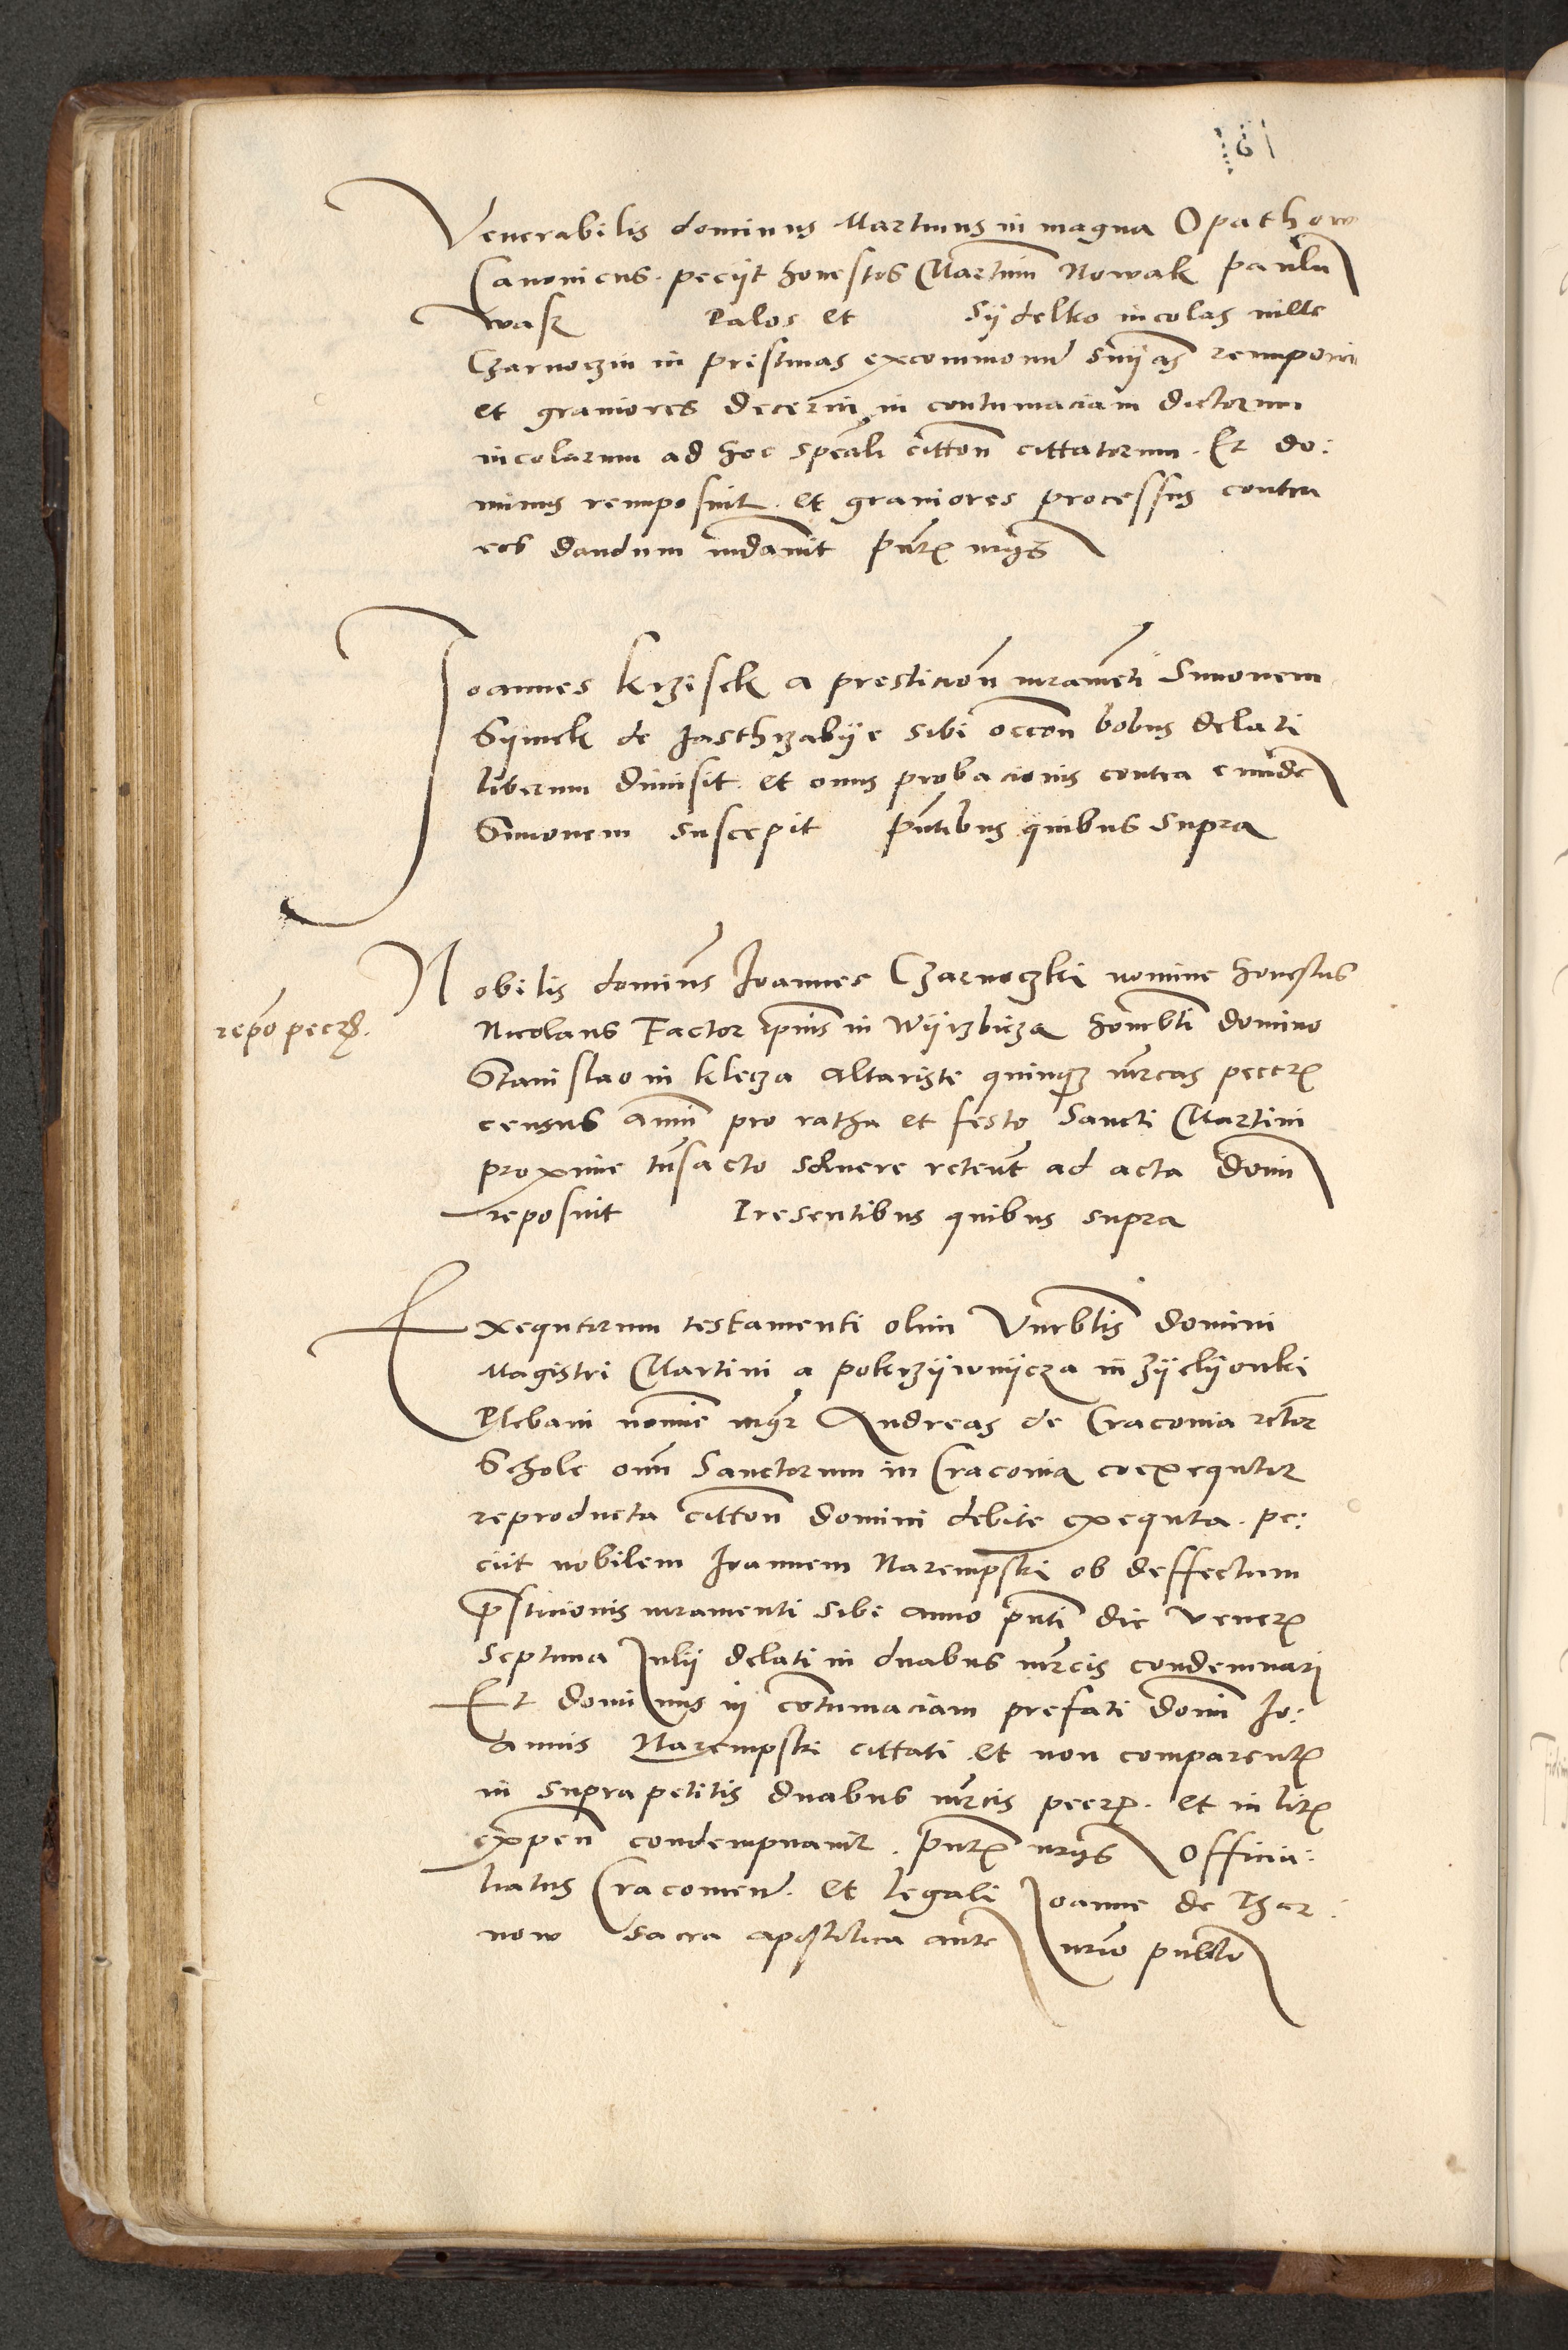 Venerabilis dominus Martinus in magna Opathow
Canonicus peciit honestos Martinum Nowak Paulu
wasz Palos et Sydelko incolas ville
Czarnoczin in pristinas excommun snias reimponi
et graviores decerni in contumaciam dictorum
incolarum ad hoc speali citton cittatorum. Et do:
minus reimposuit et graviores processus contra
eos dandum mdavit pntr nrys
Joannes krzisek a presticion iuramenti Simonem
Symek de Jasthrzabye sibi occon bobus delati
liberum dimisit et onus probacionis contra eunde
Simonem suscepit pntibus quibus supra
Nobilis dominus Joannes Czarnoczki nomine honestus
repo pecz.
Nicolaus Factor ipius in Wyrzbicza honrbli domino
Stanislao in klecza altariste quinqz mrcas peccr
census anni pro ratha et festo Sancti Martini
proxime tnsacto solvere retent ad acta domi
reposuit Presentibus quibus supra
Exequtorum testamenti olim Vnrblis domini
Magistri Martini a pokrzywnycza in zyelyonki
Plebani nomine mgr Andreas de Cracovia rctor
Schole omn Sanctorum in Cracovia coexequtor
reproducta citton domini debite exequta. pe:
ciit nobilem Joannem Narempski ob deffectum
psticionis iuramenti sibi anno pnti die vener
septima Julii delati in duabus mrcis condemnari
Et dominus in cotumaciam prefati domi Jo:
annis Narempski cittati et non comparent
in suprapetitis duabus mrcis peccr. et in lit
expen condempnavit. pntr nrys Officia:
liatus Cracovien. et legali Joanne de Thar:
now Sacra apostolica aute nrio publco